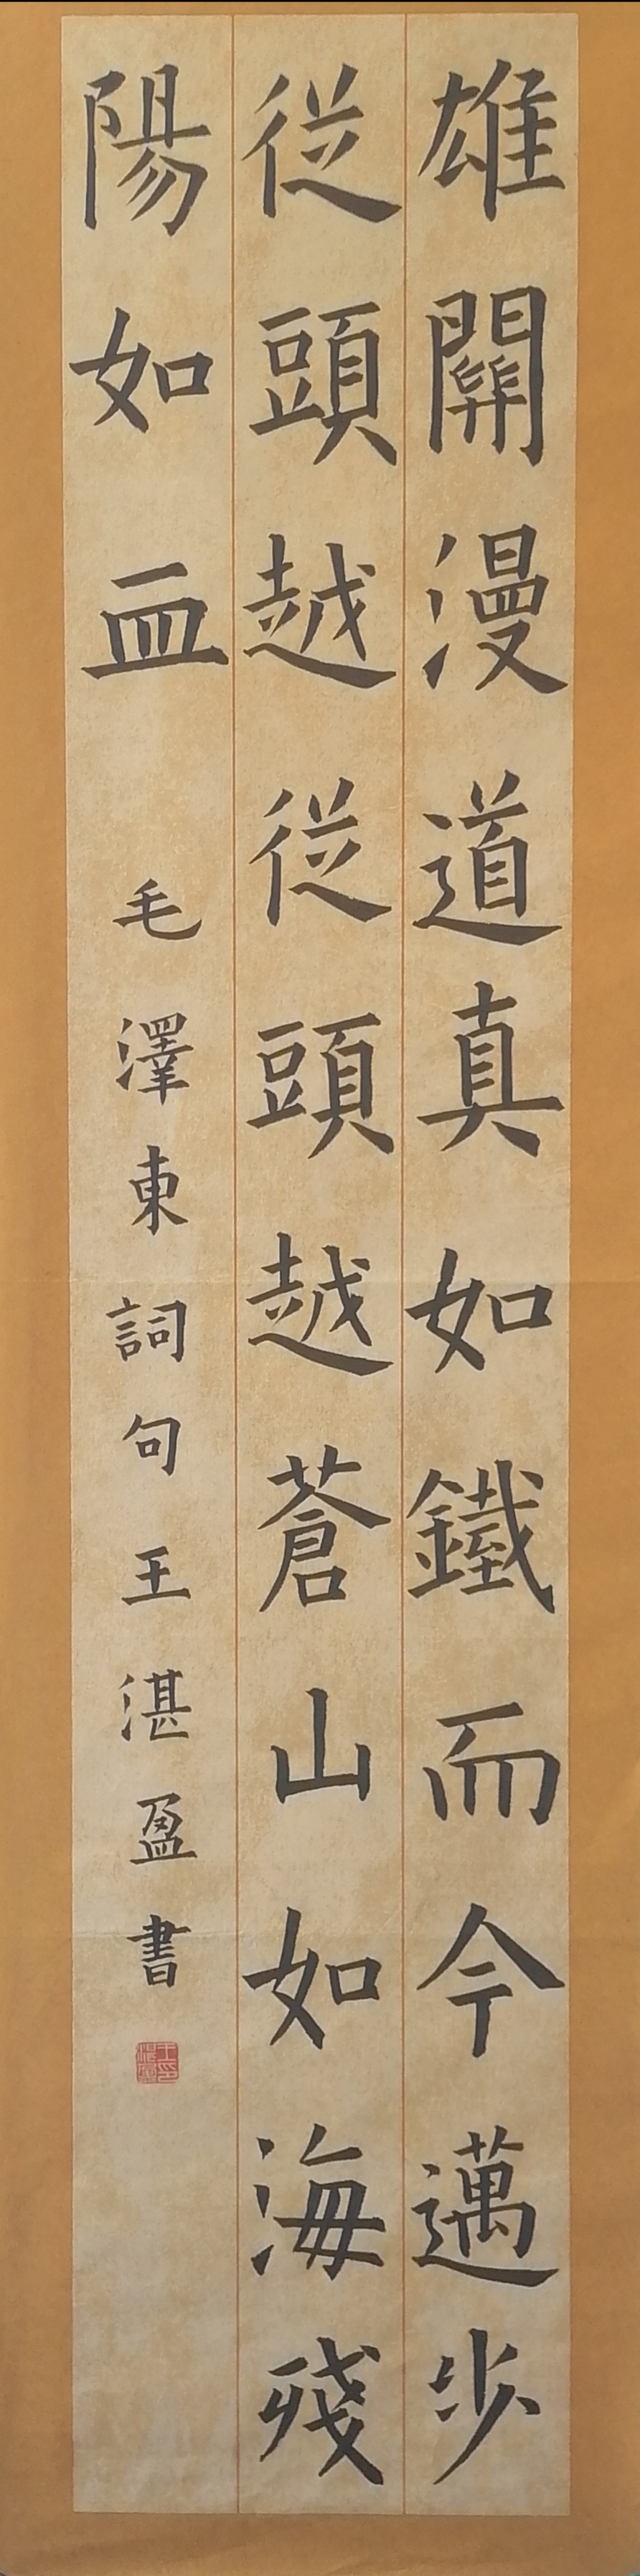 雄關漫道真如鐵而今邁步
從頭越從頭越蒼山如海殘
陽如血 毛澤東詞句王湛盈書